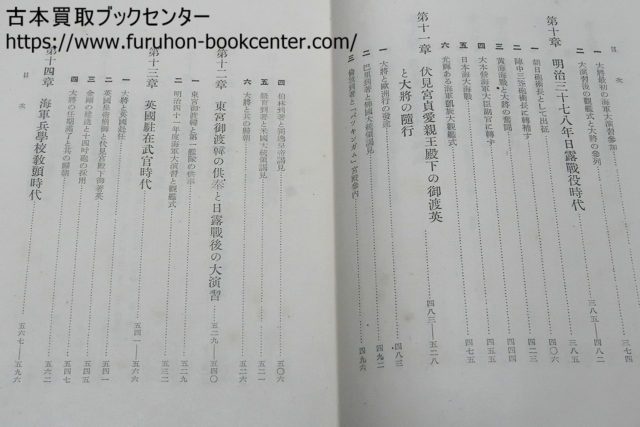 古本買取ブックセンター
https://www.furuhon-bookcenter.com/
目次
一 大將最初の海軍大演習參加 三七四
二 大演習後の觀艦式と大將の參列
第十章 明治三十七八年日露戰役時代 三八五—四八二
一 朝日砲術長として出征 三八五
二 陣中三笠砲術長に轉補す 四〇六
三 黃海海戰と大將の奮鬪 四二三
四 大本營海軍大臣副官に轉ず 四四四
五 日本海大海戰
六 光輝ある海軍凱旋大觀艦式
第十一章 伏見宮貞愛親王殿下の御渡英と大將の隨行 四八三—五二八
一 大將と歐洲行の發端 四八三
二 巴里到著と佛國大統領謁見 四九二
三 倫敦到著と「バッキンガム」宮殿參內 四九六
四 伯林到著と獨帝皇帝謁見 五〇六
五 紐育到著と米國大統領謁見 五二一
六 大將と兵の歸朝 五二六
第十二章 東宮御渡韓の供奉と日露戰後の大演習 五二九—五四〇
一 東宮御渡韓と第一艦隊の供奉 五二九
二 明治四十一年度海軍大演習と觀艦式 五三二
第十三章 英國駐在武官時代 五四一—
一 大將と英國赴任 五四一
二 英國皇帝崩御と伏見宮殿下御著英 五四四
三 金剛の建造と十四吋砲の採用 五四五
四 大將の任期滿了と兵の歸朝 五四七
第十四章 海軍兵學校敎頭時代 五六七—五九六
目次